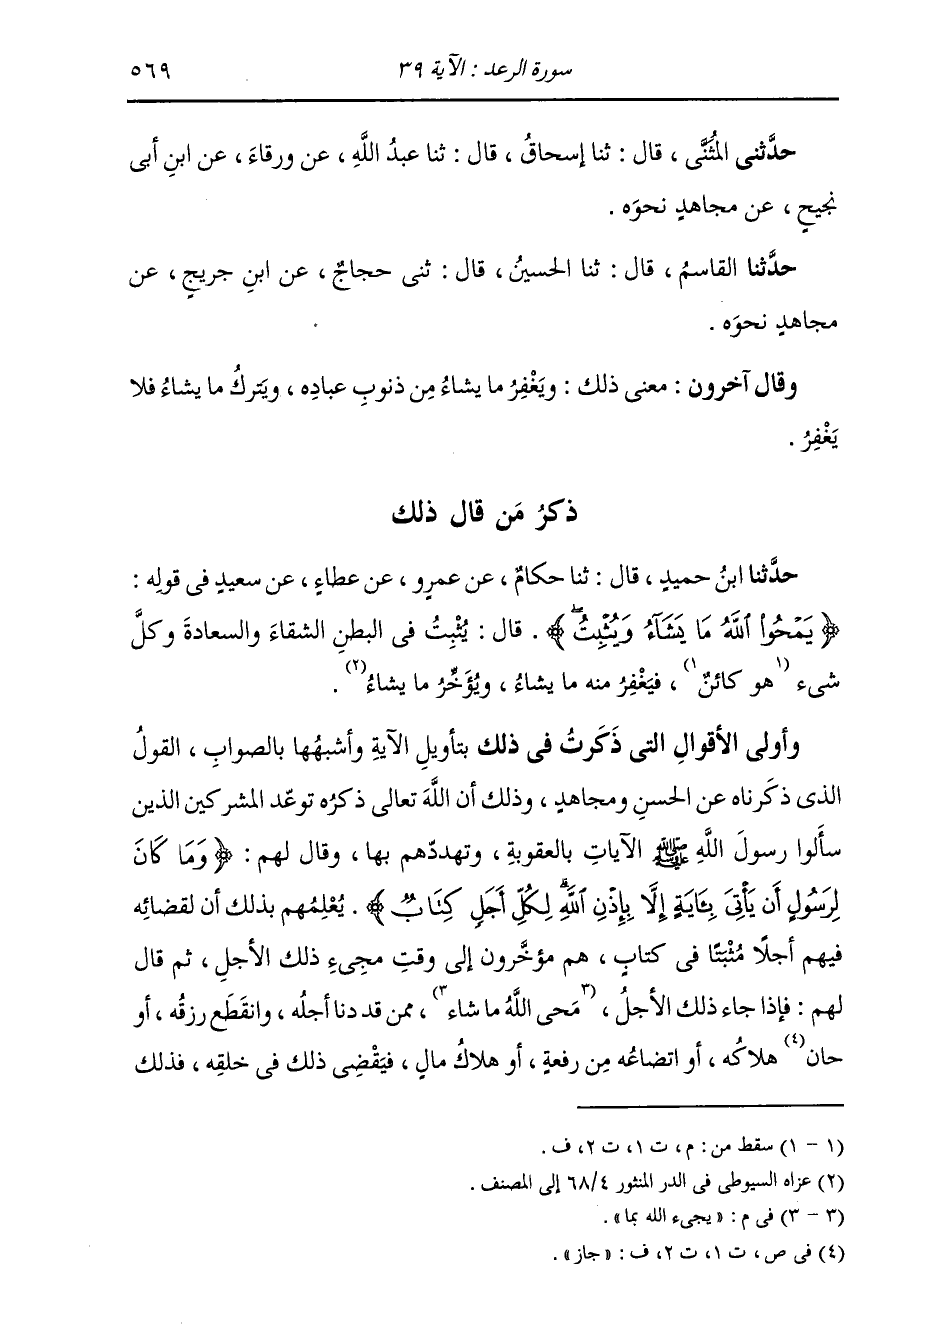 سورة الرعد : الآية ٣٩ ٥٦٩
حدَّثنى المُثَنَّى ، قال : ثنا إسحاقُ ، قال : ثنا عبدُ اللَّهِ ، عن ورقاءَ ، عن ابنِ أبى
نجيحٍ ، عن مجاهدٍ نحوَه .
حدَّثنا القاسمُ ، قال : ثنا الحسينُ ، قال : ثنى حجاجٌ ، عن ابنِ جريجٍ ، عن
مجاهدٍ نحوَه .
وقال آخرون : معنى ذلك : ويَغْفِرُ ما يشاءُ مِن ذنوبِ عبادِه ، ويَتركُ ما يشاءُ فلا
يَغْفِرُ .
ذكرُ مَن قال ذلك
حدَّثنا ابنُ حميدٍ ، قال : ثنا حكامٌ ، عن عمرٍو ، عن عطاءٍ ، عن سعيدٍ فى قولِه :
﴿ يَمْحُوا۟ ٱللَّهُ مَا يَشَآءُ وَيُثْبِتُ ۖ ﴾ . قال : يُثْبِتُ فى البطنِ الشقاءَ والسعادةَ وكلَّ
شىء (١هو كائنٌ١) ، فيَغْفِرُ منه ما يشاءُ ، ويُؤَخِّرُ ما يشاءُ(٢) .
وأولى الأقوالِ التى ذَكَرتُ فى ذلك بتأويلِ الآيةِ وأشبهُها بالصوابِ ، القولُ
الذى ذكَرناه عن الحسنِ ومجاهدٍ ، وذلك أن اللَّهَ تعالى ذكرُه توعّد المشركين الذين
سأَلوا رسولَ اللَّهِ ﷺ الآياتِ بالعقوبةِ ، وتهددّهم بها ، وقال لهم : ﴿ وَمَا كَانَ
لِرَسُولٍ أَن يَأْتِىَ بِـَٔايَةٍ إِلَّا بِإِذْنِ ٱللَّهِ ۗ لِكُلِّ أَجَلٍ كِتَابٌ ﴾ . يُعْلِمُهم بذلك أن لقضائِه
فيهم أجلًا مُثْبَتًا فى كتابٍ ، هم مؤخَّرون إلى وقتِ مجِىءِ ذلك الأجلِ ، ثم قال
لهم : فإذا جاء ذلك الأجلُ ، (٣مَحى اللَّهُ ما شاء٣) ، ممن قد دنا أجلُه ، وانقَطَع رزقُه ، أو
حان(٤) هلاكُه ، أو اتضاعُه مِن رفعةٍ ، أو هلاكُ مالٍ ، فيَقْضِى ذلك فى خلقِه ، فذلك
(١ - ١) سقط من : م ، ت ١، ت ٢، ف .
(٢) عزاه السيوطى فى الدر المنثور ٤/ ٦٨ إلى المصنف .
(٣ - ٣) فى م : « يجىء الله بما » .
(٤) فى ص ، ت ١، ت ٢، ف : « جاز » .